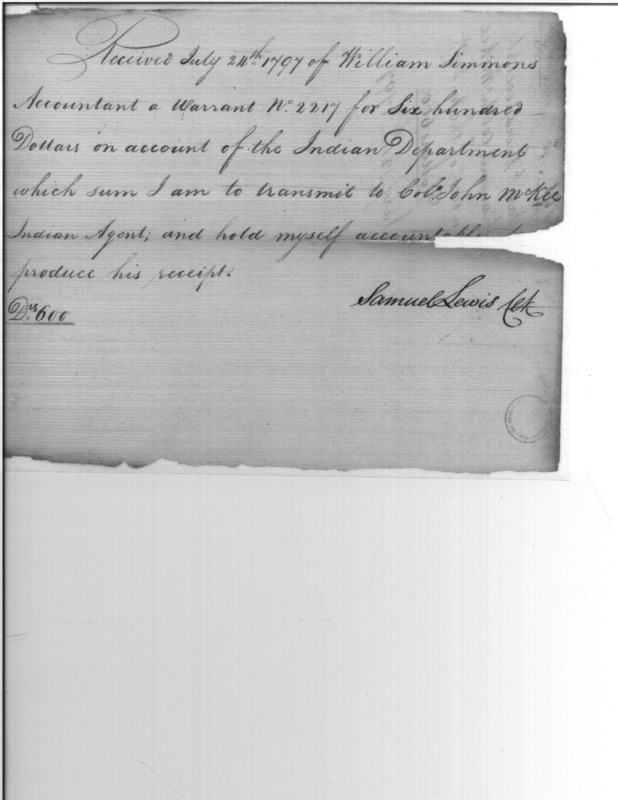 Received July 24th 1797 of William Simmons
Accountant a Warrant No. 2217 for Six hundred
Dollars on account of the Indian Department
which sum I am to transmit to Colo. John McKee
Indian Agent; and hold myself accountable
produce his receipt.
Drs. 600
Samuel Lewis Clk